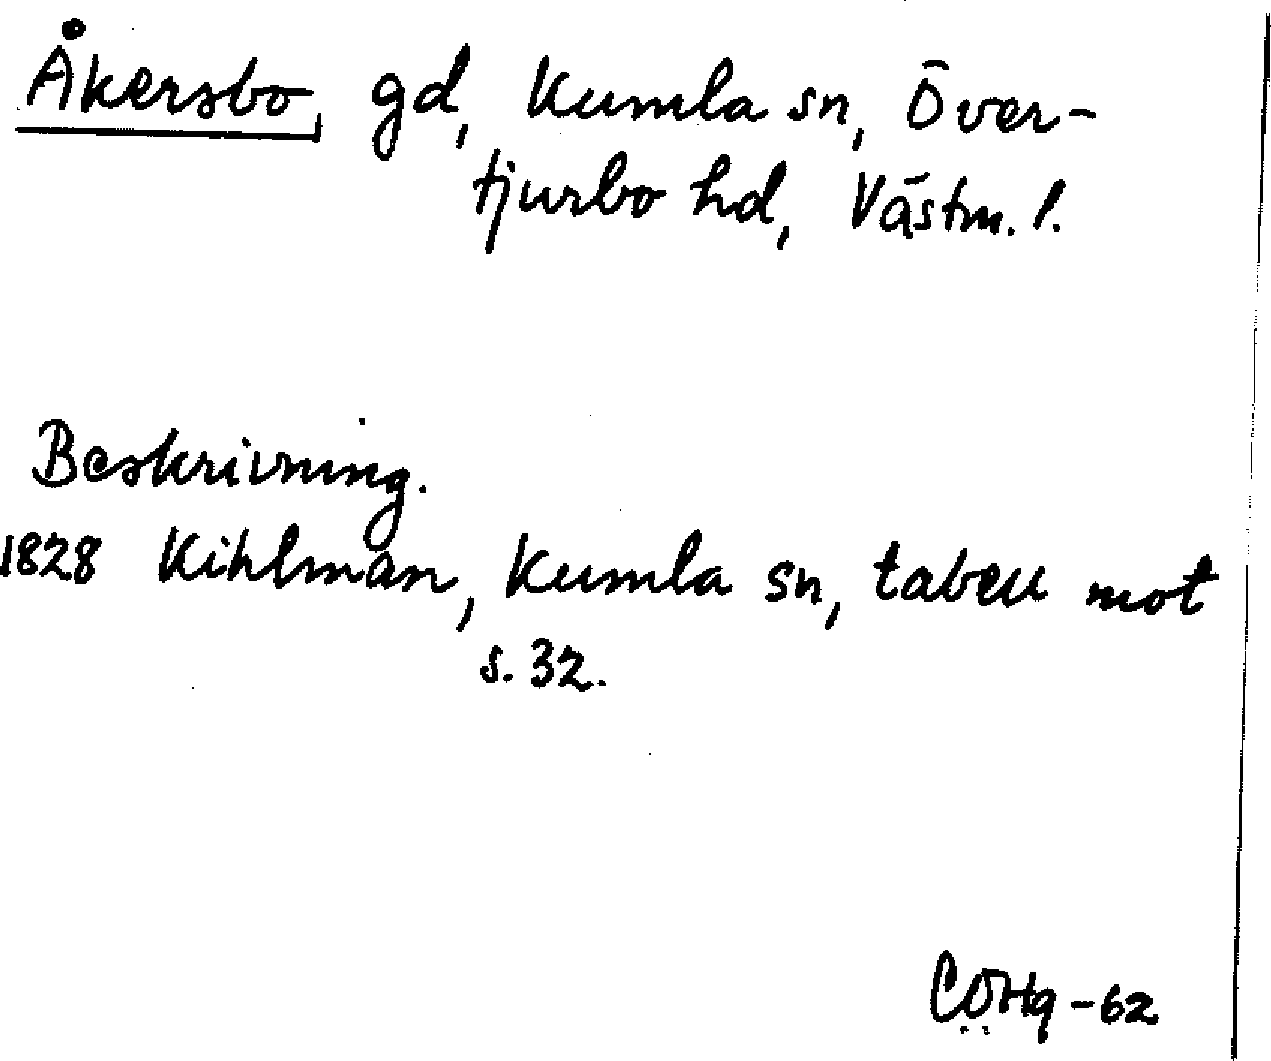 Åkersbo, gd, Kumla sn, Över-
tjurbo hd, Västm. l.
Beskrivning.
1828 Kihlman, Kumla sn, tabell mot
s. 32.
CÖHg -62